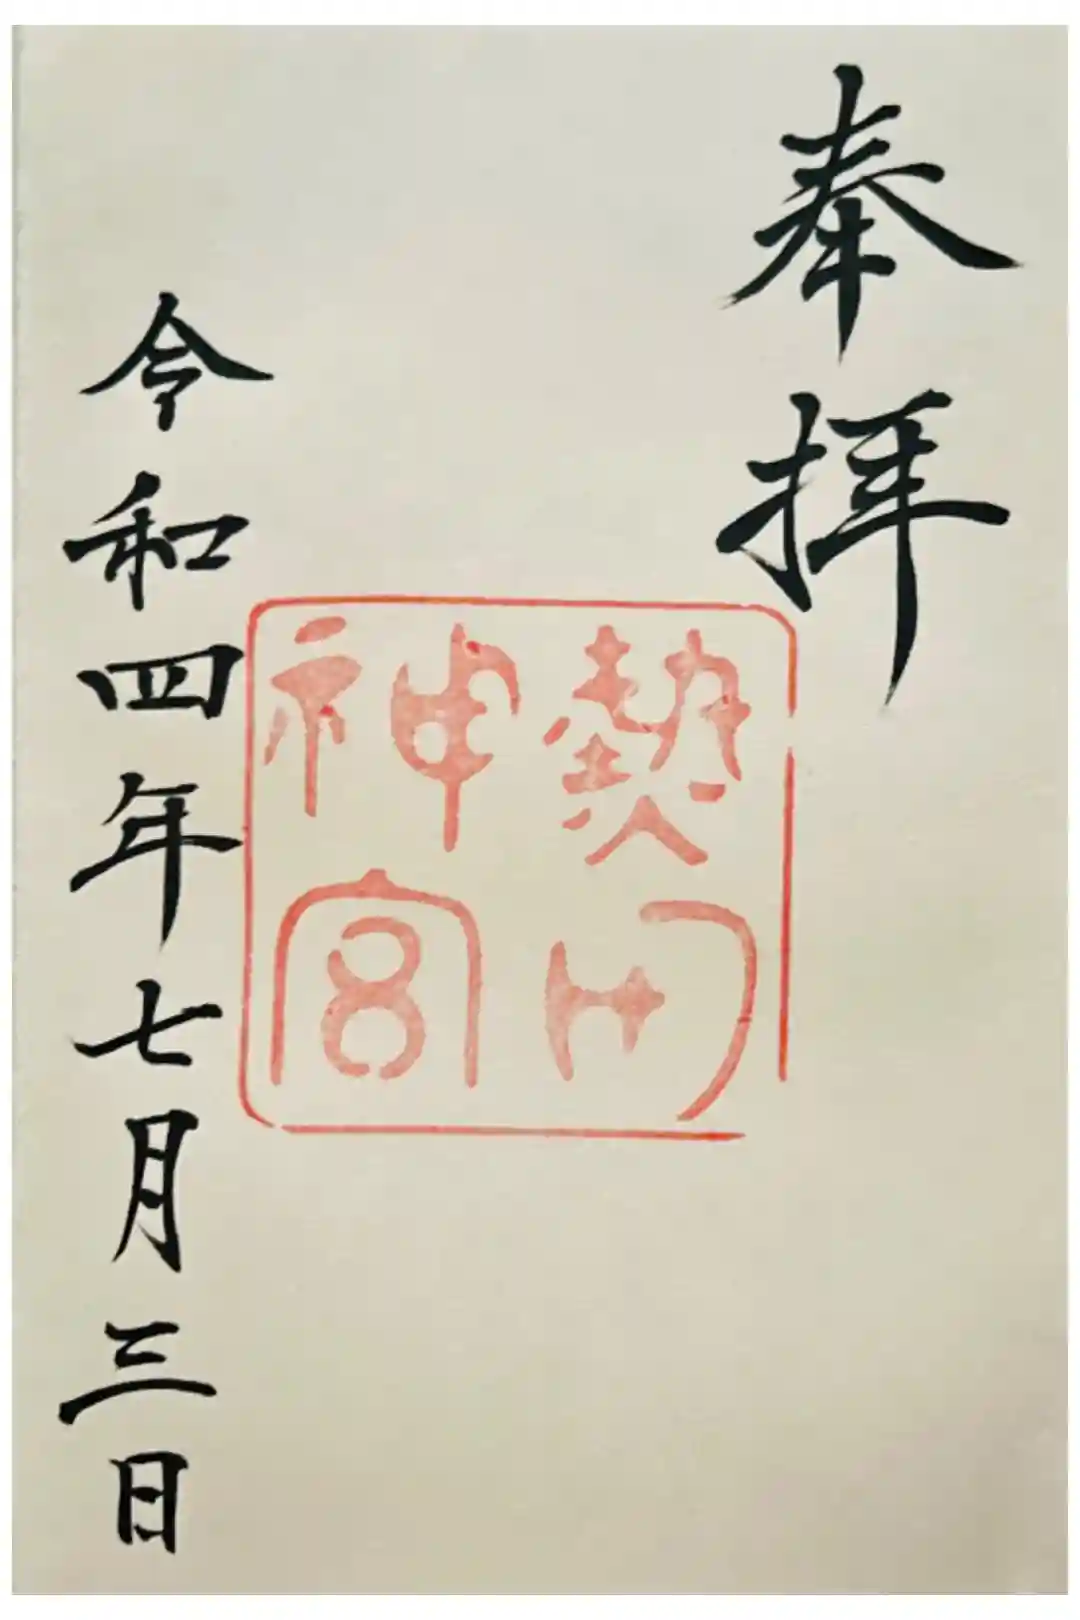 奉拝
熱田
神宮
令和四年七月三日